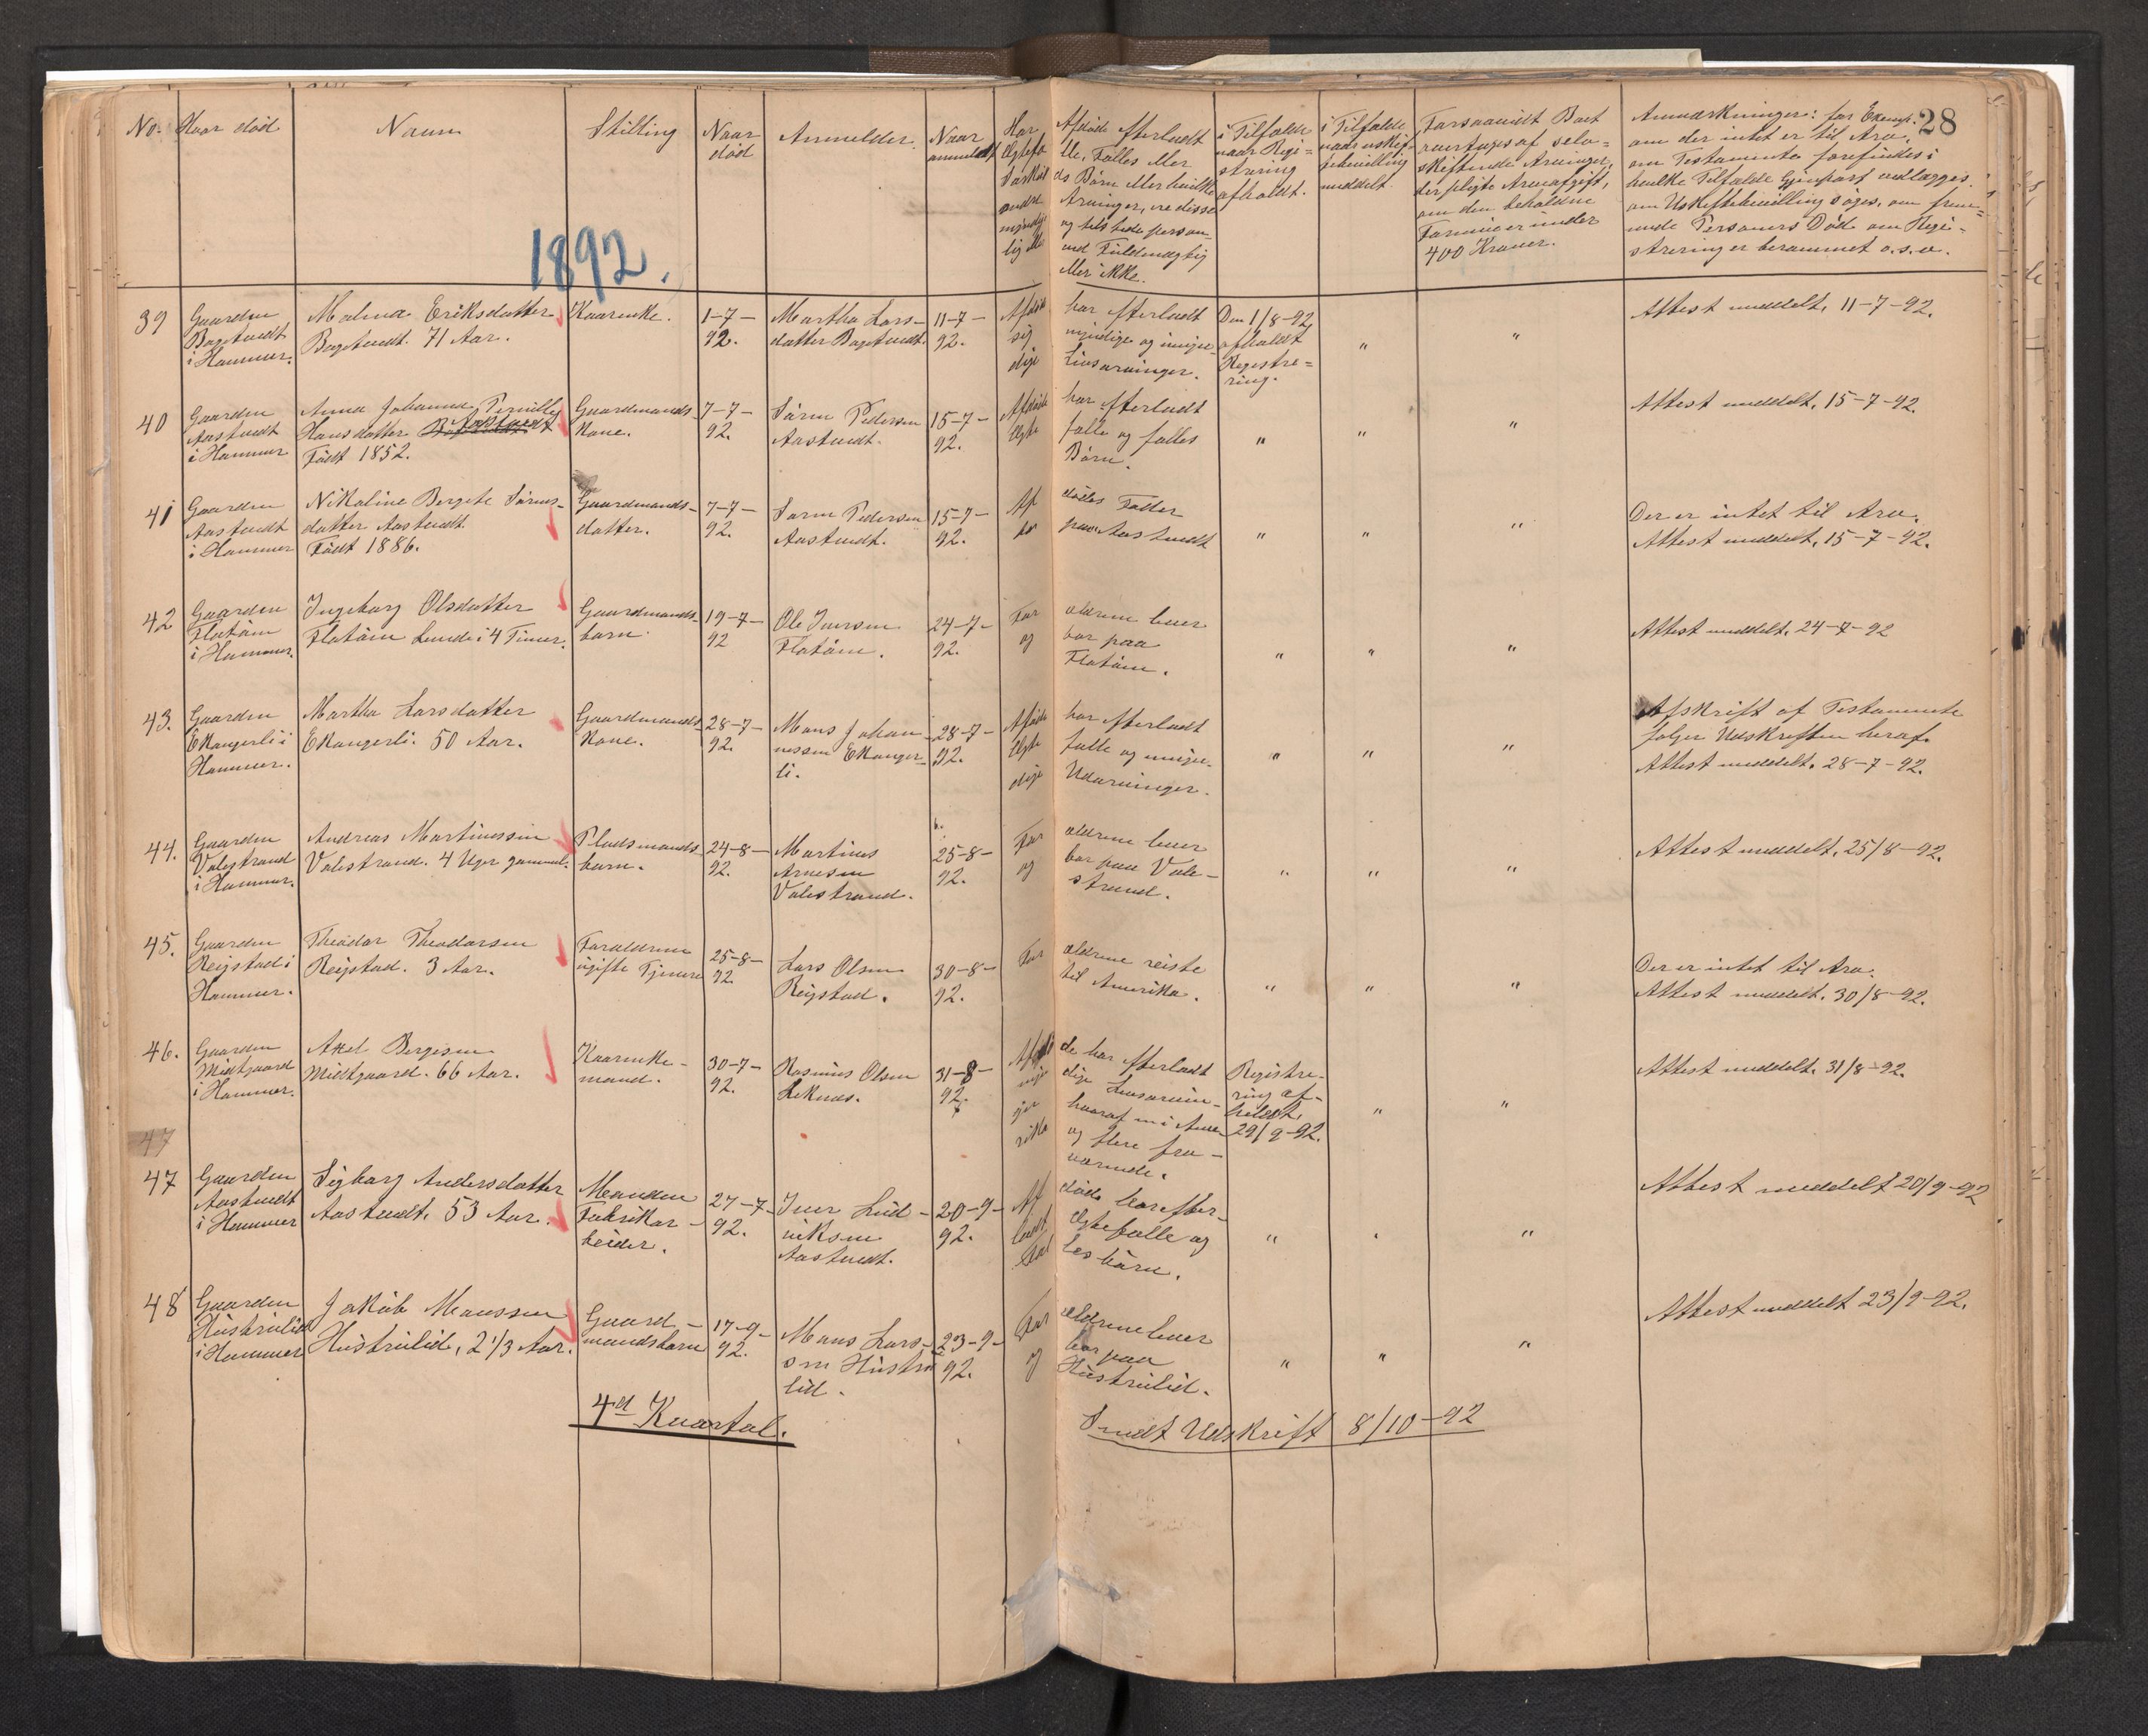 28
No. Hvor død Navn Stilling Naar død Anmelder Naar anmeldt
Har Afdøde efterladt
Ægtefælle, Fælles eller
Særskilds Børn eller hvilke
andre Arvinger, ere disse
myndige og tilstede person-
lig eller ved Fuldmægtig
eller ikke.
i Tilfælde
naar Regi=
strering
afholdt.
i Tilfælde
naar uskif-
tebevilling
meddelt.
Forsaavidt Boet
overtages af selv=
skiftende Arvinger,
der pligte Arveafgift,
om den beholdne
Formue er under
400 Kroner.
Anmærkninger: for Exemp.
om der intet er til Arv.
om Testamente forefindes i
hvilke Tilfælde Gjenpart vedlægges.
om Uskiftebevilling søges, om frem=
mede Personers Død om Regi=
strering er berammet o.s.v.
1892.
39 Gaarden
Bogstuedt
i Hammer.
Malena Eriksdatter
Bogstuedt. 71 Aar.
Kaarenke.
1-7-
92.
Martha Lars-
datter Bogstuedt.
11-7-
92.
Afdøde har efterladt
sig myndige og umyn-
dige Livsarvinger.
Den 1/8-92
afholdt
Registre=
ring.
" "
Attest meddelt, 11-7-92.
40 Gaarden
Aastuedt
i Hammer
Anna Johanna Pernille
Hansdatter Aastuedt
Født 1852.
Gaardmands-
Kone.
7-7-
92.
Søren Pedersen
Aastuedt.
15-7-
92.
Afdøde har efterladt
Ægtefælle og fælles
Børn.
" " "
Attest meddelt, 15-7-92.
41 Gaarden
Aastuedt
i Hammer
Nikoline Bergete Sørens-
datter Aastuedt.
Født 1886.
Gaardmands-
datter.
7-7-
92.
Søren Pedersen
Aastuedt.
15-7-
92.
Afdødes Fader
bor paa Aastuedt
" " "
Der er intet til Arv.
Attest meddelt, 15-7-92.
42 Gaarden
Flatøen
i Hammer.
Ingeborg Olsdatter
Flatøen Levede i 4 Timer.
Gaardmands-
barn.
19-7-
92
Ole Iversen
Flatøen.
24-7-
92.
Forældrene lever
og bor paa
Flatøen.
" " "
Attest meddelt, 24-7-92
43. Gaarden
Ekangerli i
Hammer.
Martha Larsdatter
Ekangerli. 50 Aar.
Gaardmands-
Kone.
28-7-
92.
Mons Johan-
nessen Ekanger-
li.
28-7-
92.
Afdøde har efterladt
Ægtefælle og umyn-
dige Udarvinger.
" " "
Afskrift af Testamente
følger Udskriften heraf.
Attest meddelt. 28-7-92.
44. Gaarden
Valestrand
i Hammer.
Andreas Martinussen
Valestrand. 4 Uger gammel.
Pladsmands-
barn.
24-8-
92.
Martinus
Arnesen
Valestrand.
25-8-
92.
Forældrene lever
og bor paa Vale-
strand.
" " "
Attest meddelt, 25/8-92.
45. Gaarden
Reigstad i
Hammer.
Theodor Theodorsen
Reigstad. 3 Aar.
Forældrene
ugifte Tjenere
25-8-
92.
Lars Olsen
Reigstad.
30-8-
92.
Forældrene reiste
til Amerika.
" " "
Der er intet til Arv.
Attest meddelt. 30/8-92.
46. Gaarden
Midtgaard
i Hammer.
Axel Bergesen
Midtgaard. 66 Aar.
Kaarenke-
mand.
30-7-
92.
Rasmus Olsen
Leknes.
31-8-
92.
Afdøde har efterladt
myndige Livsarvin-
ger hvoraf en i Ame-
rika og flere fra-
værende.
Registre-
ring af-
holdt.
29/9-92.
" "
Attest meddelt. 31/8-92.
47
47 Gaarden
Aastuedt
i Hammer
Sigborg Andersdatter
Aastuedt. 53 Aar.
Manden
Fabrikar-
beider.
27-7-
92.
Iver Lud-
viksen
Aastuedt.
20-9-
92.
Afdøde har efter-
ladt Ægtefælle og
fælles børn.
" " "
Attest meddelt 20/9-92
48 Gaarden
Hustrulid
i Hammer
Jakob Monssen
Hustrulid, 2 1/3 Aar.
Gaard-
mandsbarn
17-9-
92.
Mons Lars-
sen Hustru
lid.
23-9-
92.
Forældrene lever
og bor paa
Hustrulid.
" " "
Attest meddelt 23/9-92.
4d Kvartal.
Sendt Udskrift 8/10-92